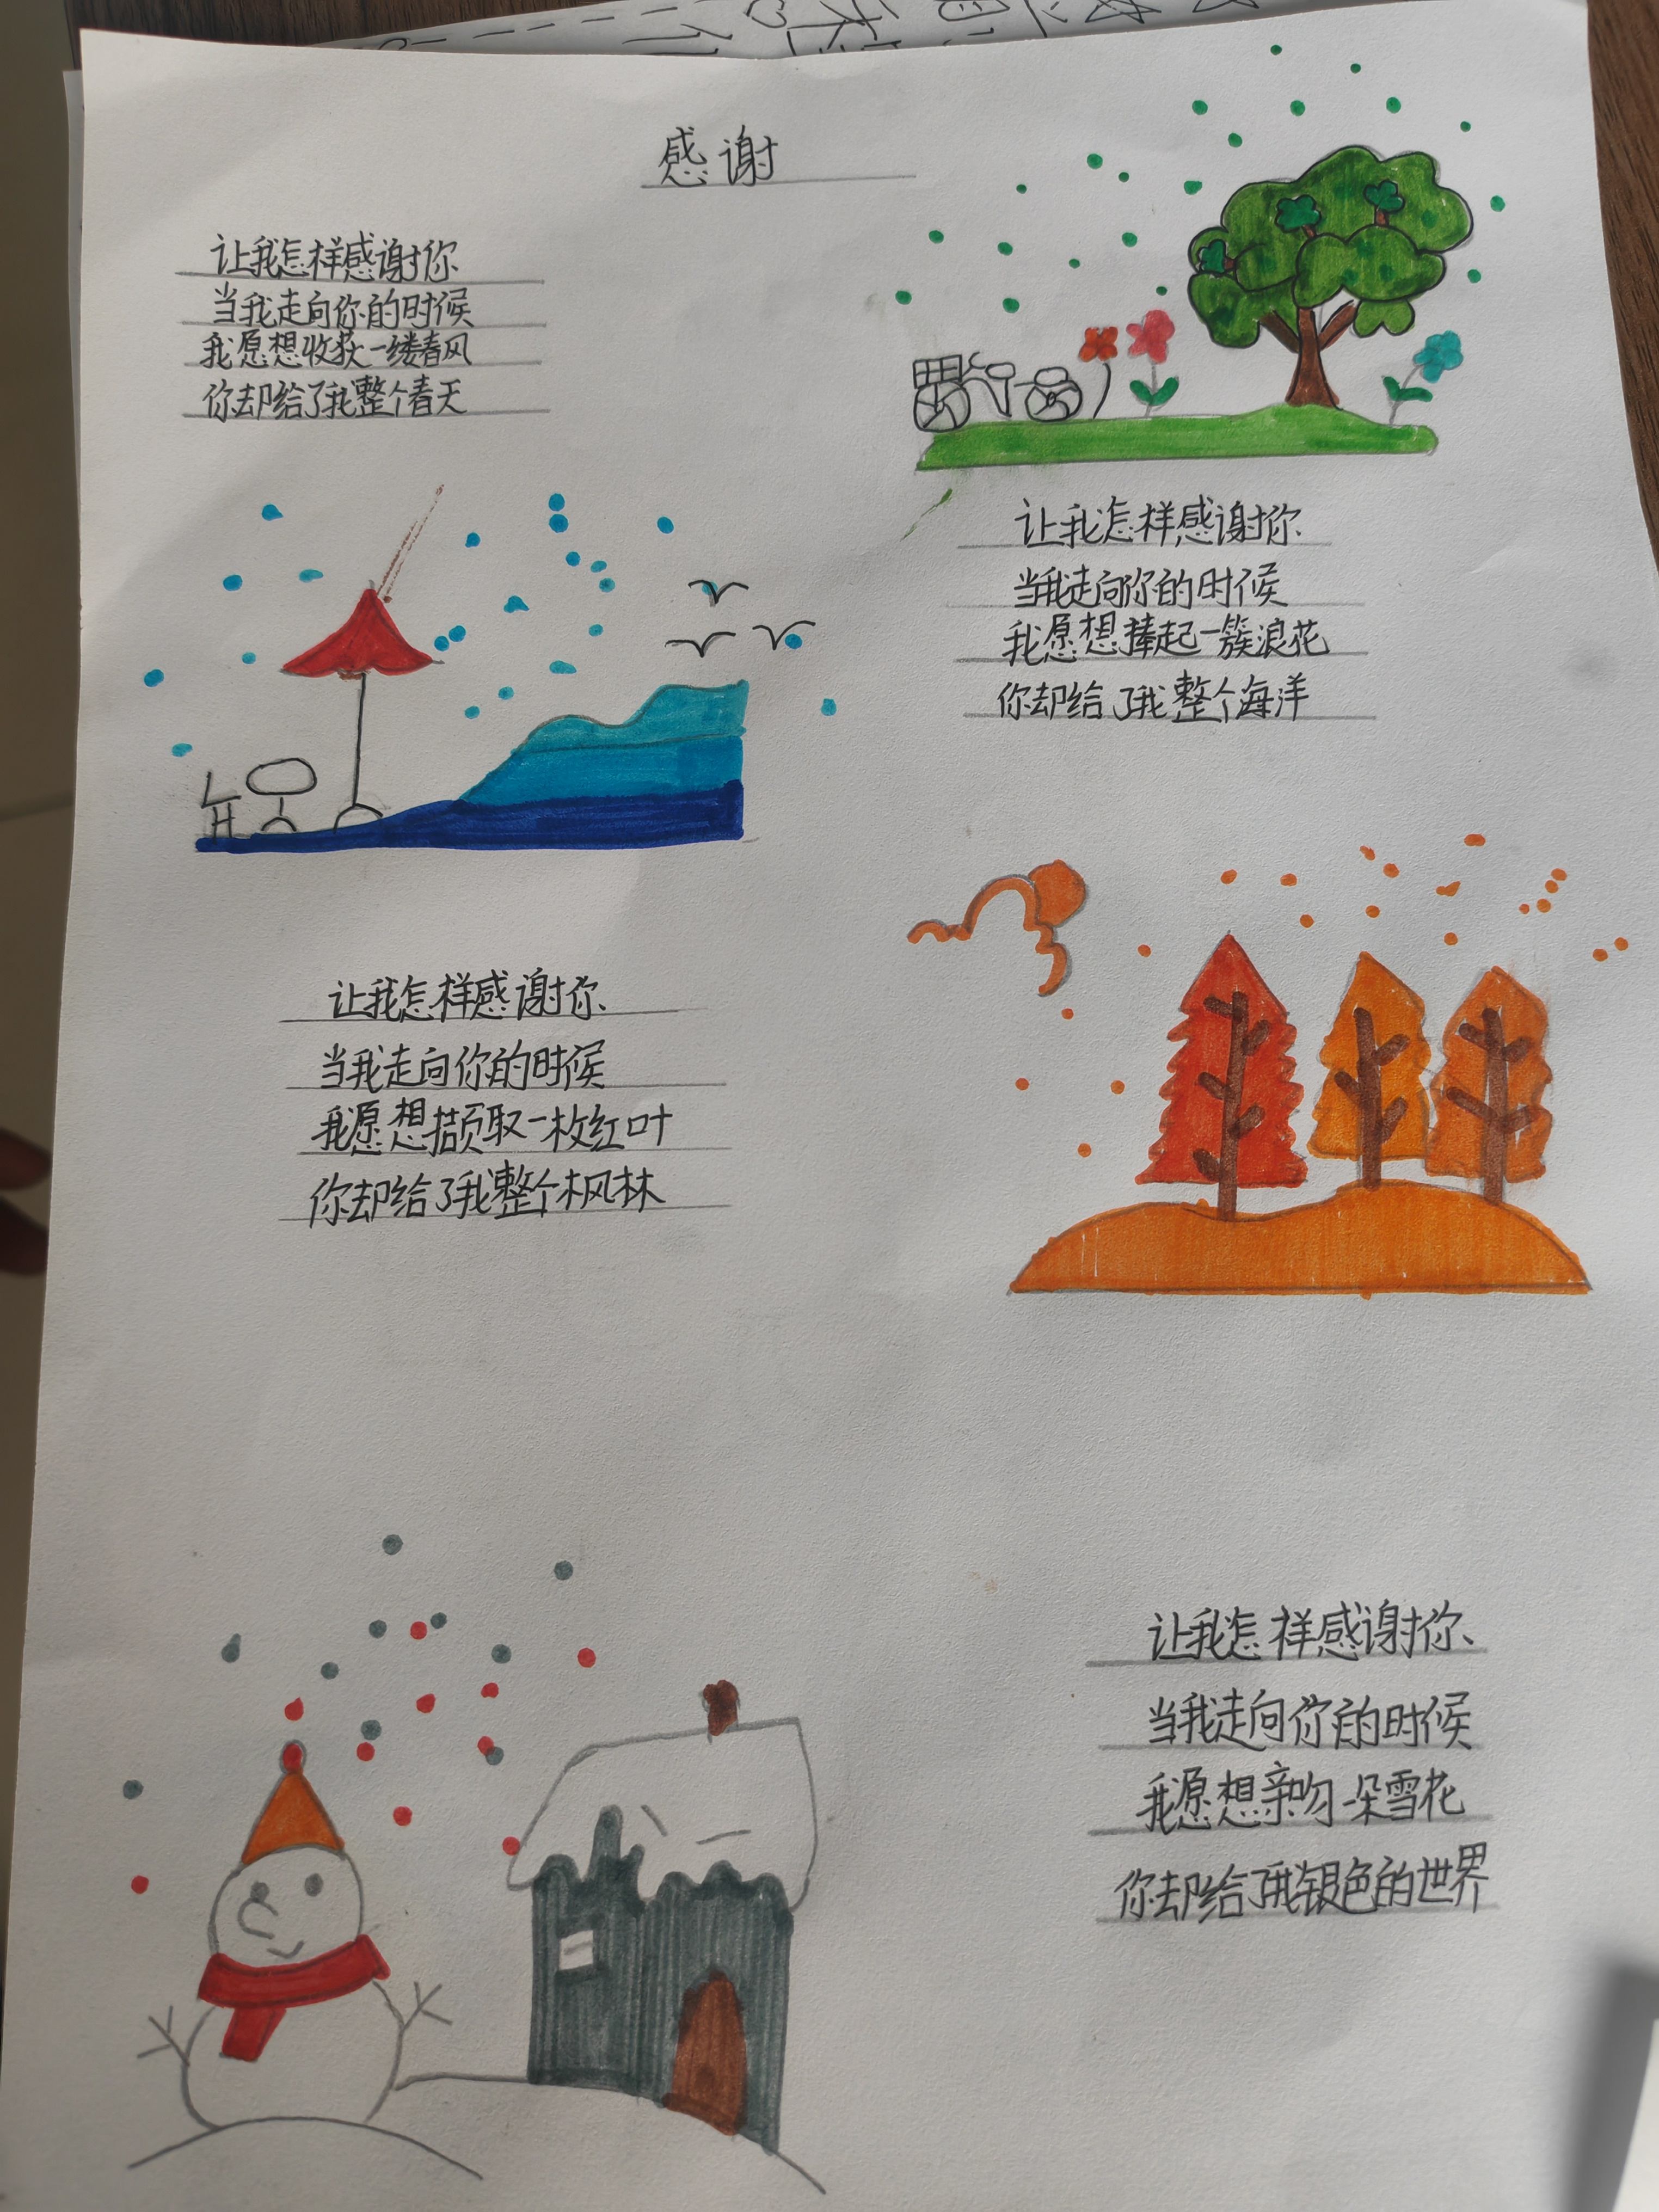 感谢
让我怎样感谢你
当我走向你的时候
我愿想收获一缕春风
你却给了我整个春天
让我怎样感谢你
当我走向你的时候
我愿想捧起一簇浪花
你却给了我整个海洋
让我怎样感谢你
当我走向你的时候
我愿想撷取一枚红叶
你却给了我整个枫林
让我怎样感谢你
当我走向你的时候
我愿想亲吻一朵雪花
你却给了我银色的世界